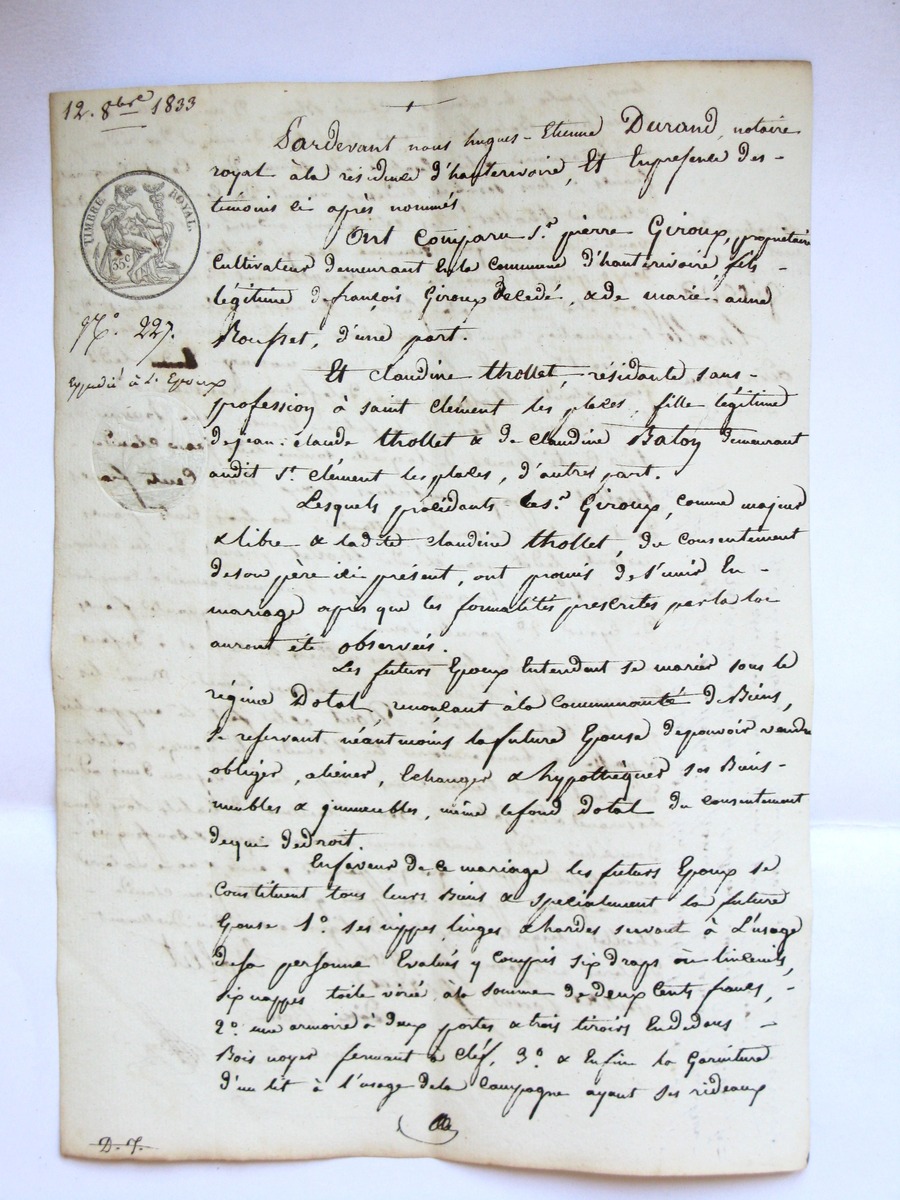 12. 8bre 1833
TIMBRE ROYAL.
35c
No. 227.
Expedié à l'Epoux
Pardevant nous hugues-Etienne Durand, notaire
royal à la résidence d'hauterivoire, Et En presence des-
témoins ci après nommés
Ont Comparu Sr. pierre Giroux, propriétaire
Cultivateur demeurant En la Commune d'hauterivoire, fils-
légitime de françois Giroux décédé, & de marie-anne
Rousset, d'une part.
Et claudine thollet, résidante sans-
profession à saint clément les places, fille légitime
de jean-claude thollet & de claudine Balay demeurant
audit St. clément les places, d'autres part.
Lesquels procédants le Sr. Giroux, comme majeur
& libre & ladite claudine thollet, du Consentement
de son père ici présent, ont promis de s'unir En-
mariage après que les formalités prescrites par la loi
auront été observées.
Les futurs Epoux Entendent se marier sous le
régime Dotal, renonçant à la Communauté de Biens,
se reservant néantmoins la future Epouse de pouvoir vendre
obliger, aliéner, Echanger & hypothéquer ses Biens-
meubles & immeubles, même le fond dotal du consentement
de qui de droit.
En faveur de ce mariage les futurs Epoux se
Constituent tous leurs Biens & spécialement la future
Epouse 1o. ses nippes, linges & hardes servant à L'usage
de sa personne Evalués y compris six draps ou linceuils,
six nappes toile à la somme de deux Cents francs,-
2o. une armoire à deux portes & trois tiroirs En dedans-
Bois noyer fermant à clef, 3o. & Enfin la Garniture
d'un lit à l'usage de la Campagne ayant ses rideaux
D. T.